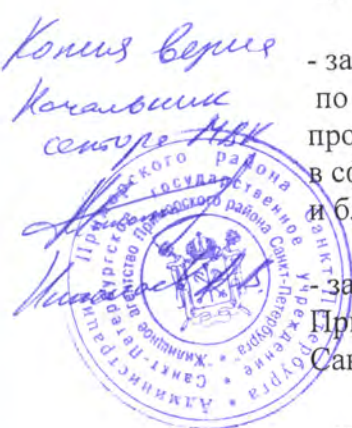 Копия верна
Начальник
сектора МВК
- за
по
про
в со
и бл
- за
При
Сан
Администрация Приморского района Санкт-Петербурга
Санкт-Петербургское государственное учреждение
"Жилищное агентство Приморского района Санкт-Петербурга"